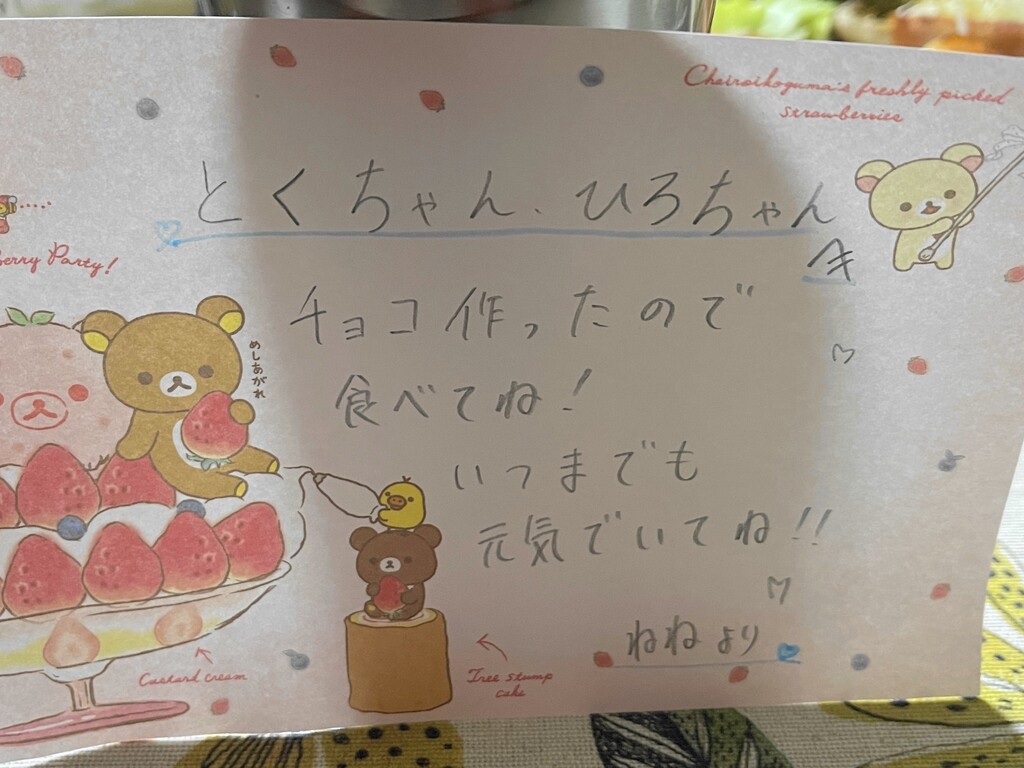 Chairoikoguma's freshly picked
strawberries
とくちゃん、ひろちゃん
へ
erry Party!
めしあがれ
チョコ作ったので
食べてね！
いつまでも
元気でいてね!!
ねねより
Custard cream
Tree stump
cake